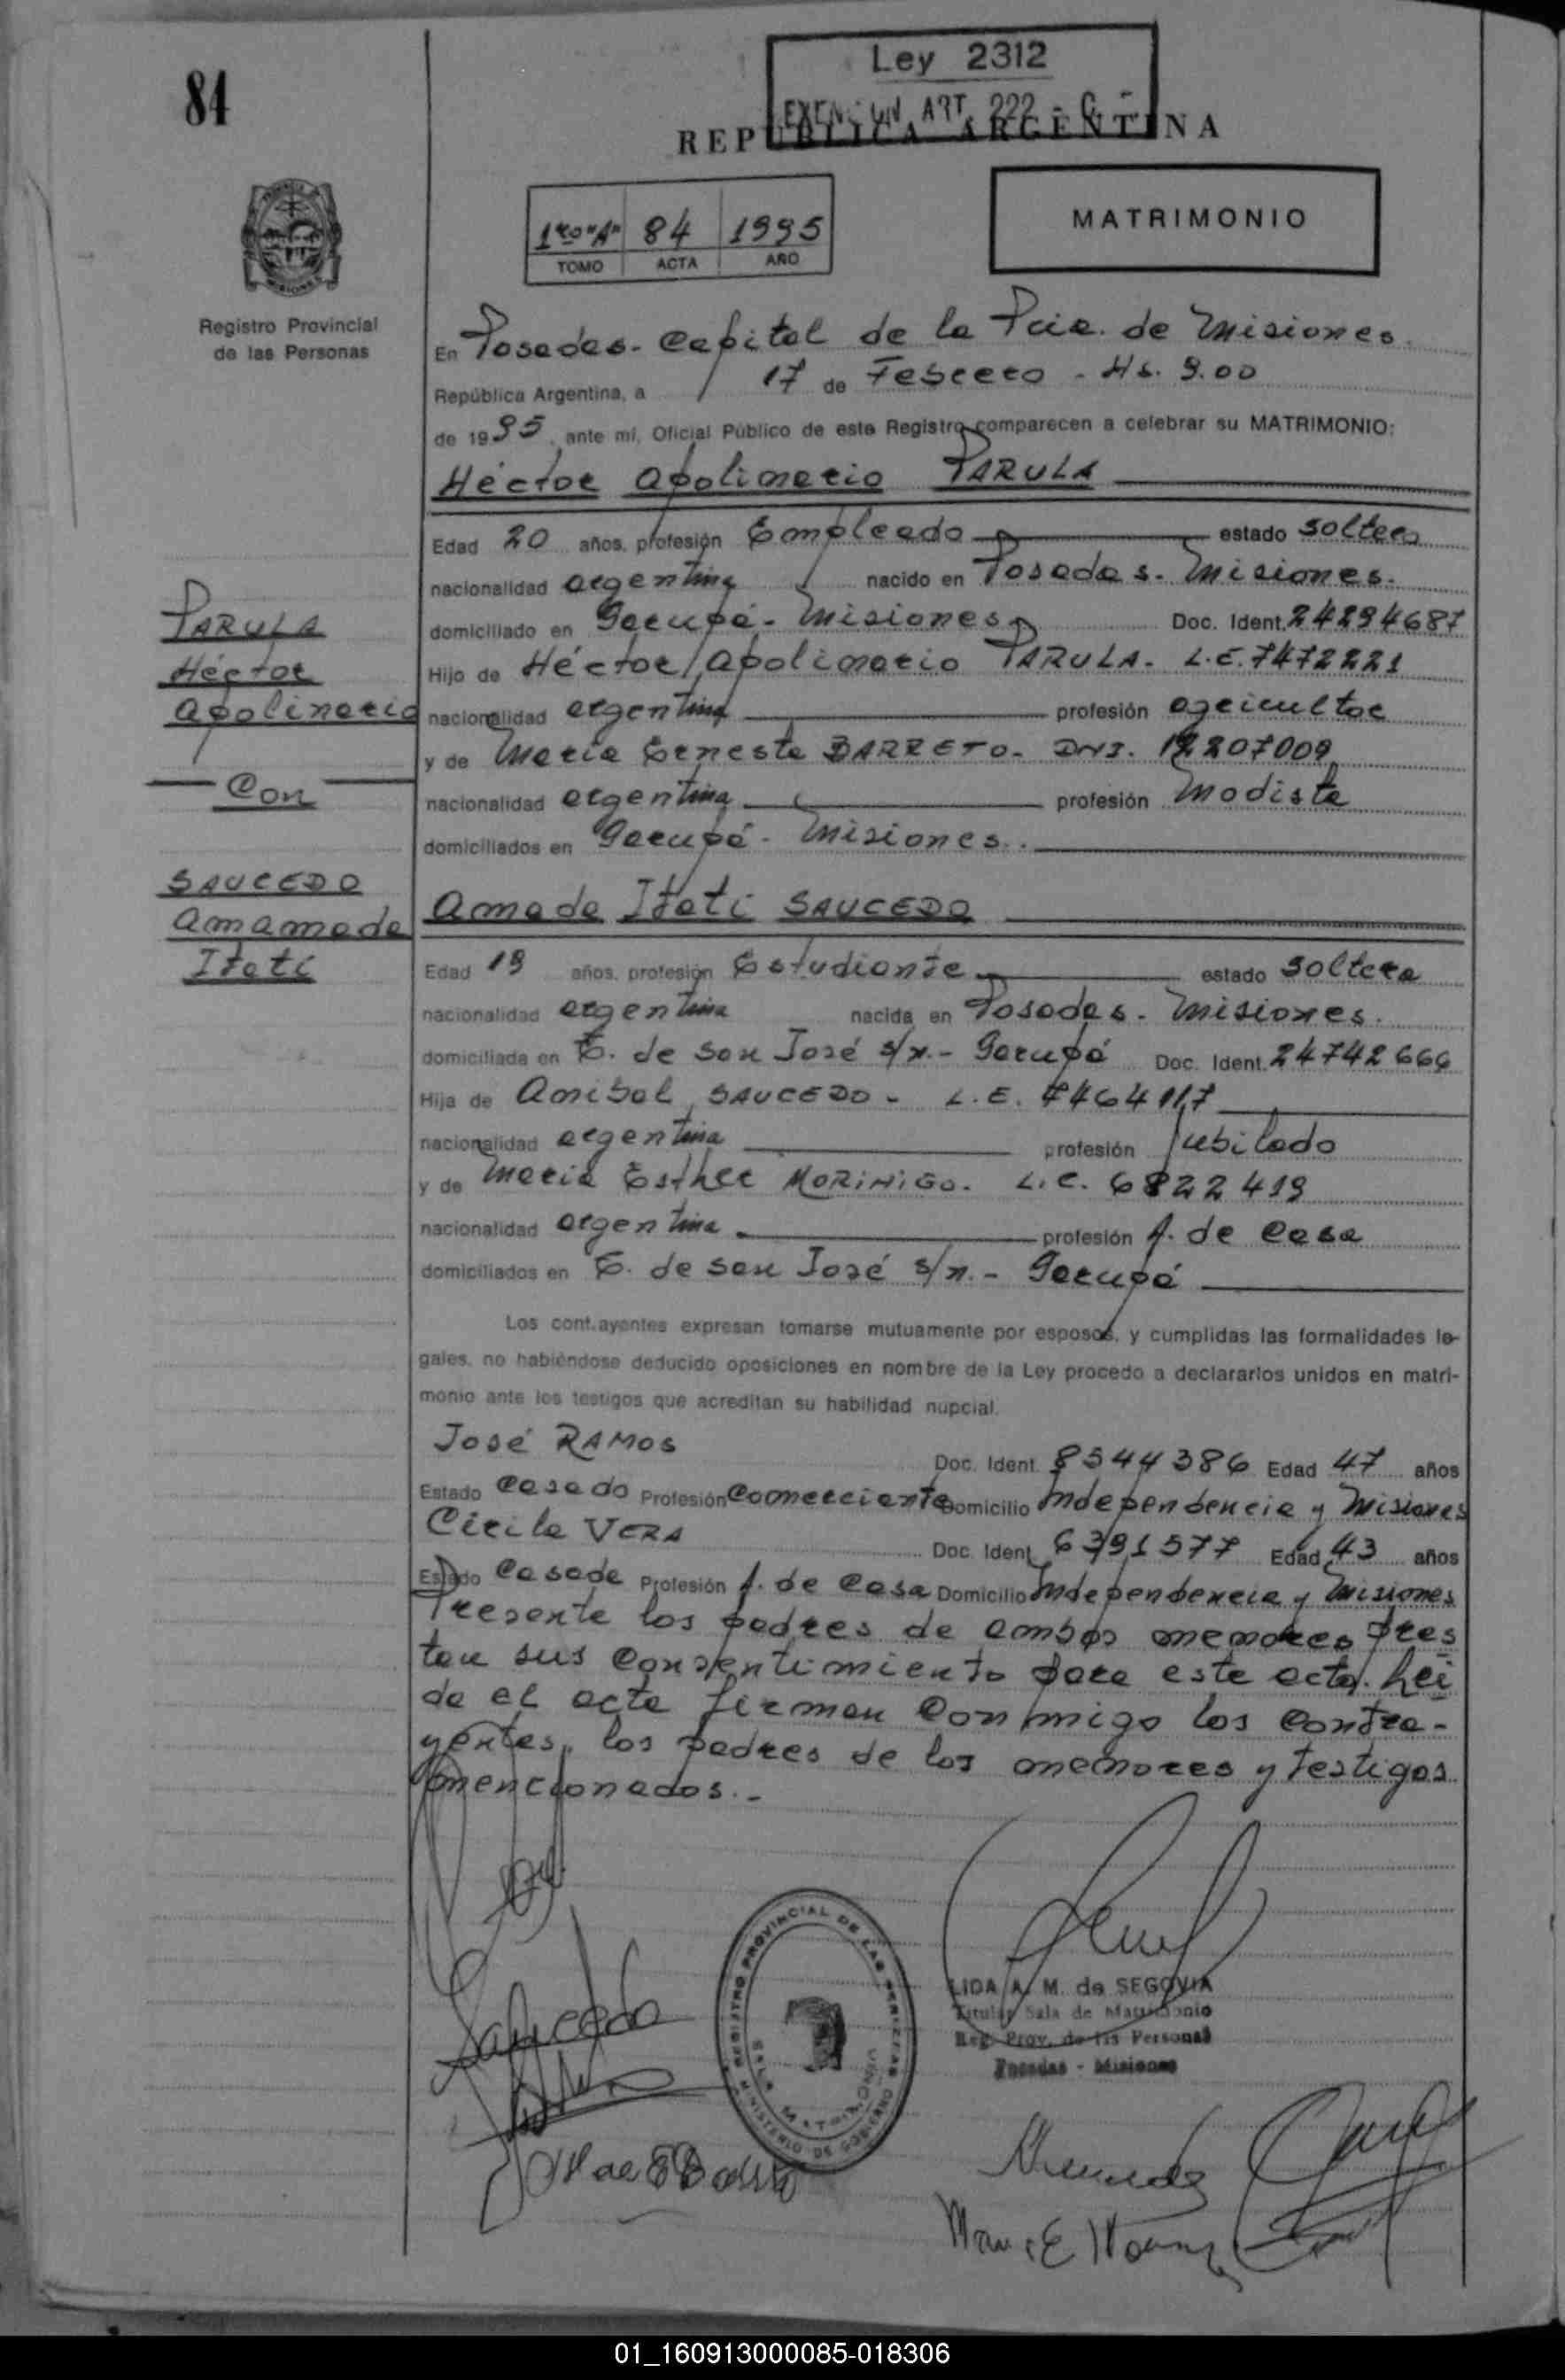 84
Ley 2312
EXENCION ART. 222 - C -
REPUBLICA ARGENTINA
1ro "A" 84 1995
TOMO ACTA AÑO
MATRIMONIO
Registro Provincial
de las Personas
En Posadas - Capital de la Pcia. de Misiones.
República Argentina, a 17 de Febrero - Hs. 9.00
de 1995, ante mí, Oficial Público de este Registro comparecen a celebrar su MATRIMONIO:
Héctor Apolinario PARULA
Edad 20 años, profesión Empleado estado soltero
nacionalidad argentina nacido en Posadas - Misiones.
domiciliado en Garupá - Misiones Doc. Ident. 24294687
Hijo de Héctor Apolinario PARULA - L.E. 7472221
nacionalidad argentina profesión agricultor
y de María Ernesta BARRETO - DNI. 12207009
nacionalidad argentina profesión Modista
domiciliados en Garupá - Misiones.
PARULA
Héctor
Apolinario
Con
SAUCEDO
Amamada
Itatí
Amada Itatí SAUCEDO
Edad 19 años, profesión Estudiante estado soltera
nacionalidad argentina nacida en Posadas - Misiones.
domiciliada en B. de San José s/n. - Garupá Doc. Ident. 24742666
Hija de Anibal SAUCEDO - L.E. 7464117
nacionalidad argentina profesión jubilado
y de María Esther MORINIGO. L.C. 6822419
nacionalidad argentina profesión A. de Casa
domiciliados en B. de San José s/n. - Garupá
Los contrayentes expresan tomarse mutuamente por esposos, y cumplidas las formalidades le-
gales, no habiéndose deducido oposiciones en nombre de la Ley procedo a declararlos unidos en matri-
monio ante los testigos que acreditan su habilidad nupcial.
José RAMOS
Doc. Ident. 8544386 Edad 47 años
Estado Casado Profesión Comerciante Domicilio Independencia y Misiones
Cirila VERA
Doc. Ident. 6391577 Edad 43 años
Estado Casada Profesión A. de Casa Domicilio Independencia y Misiones
Presente los padres de ambos menores pres
tan sus Consentimiento para este acto. Leí
da el acta firman Conmigo los Contra-
yentes, los padres de los menores y testigos
mencionados.-
Saucedo
REGISTRO PROVINCIAL DE LAS PERSONAS
SALA MATRIMONIO
MINISTERIO DE GOBIERNO
LIDA A. M. de SEGOVIA
Titular Sala de Matrimonio
Reg. Prov. de las Personas
Posadas - Misiones
01_160913000085-018306